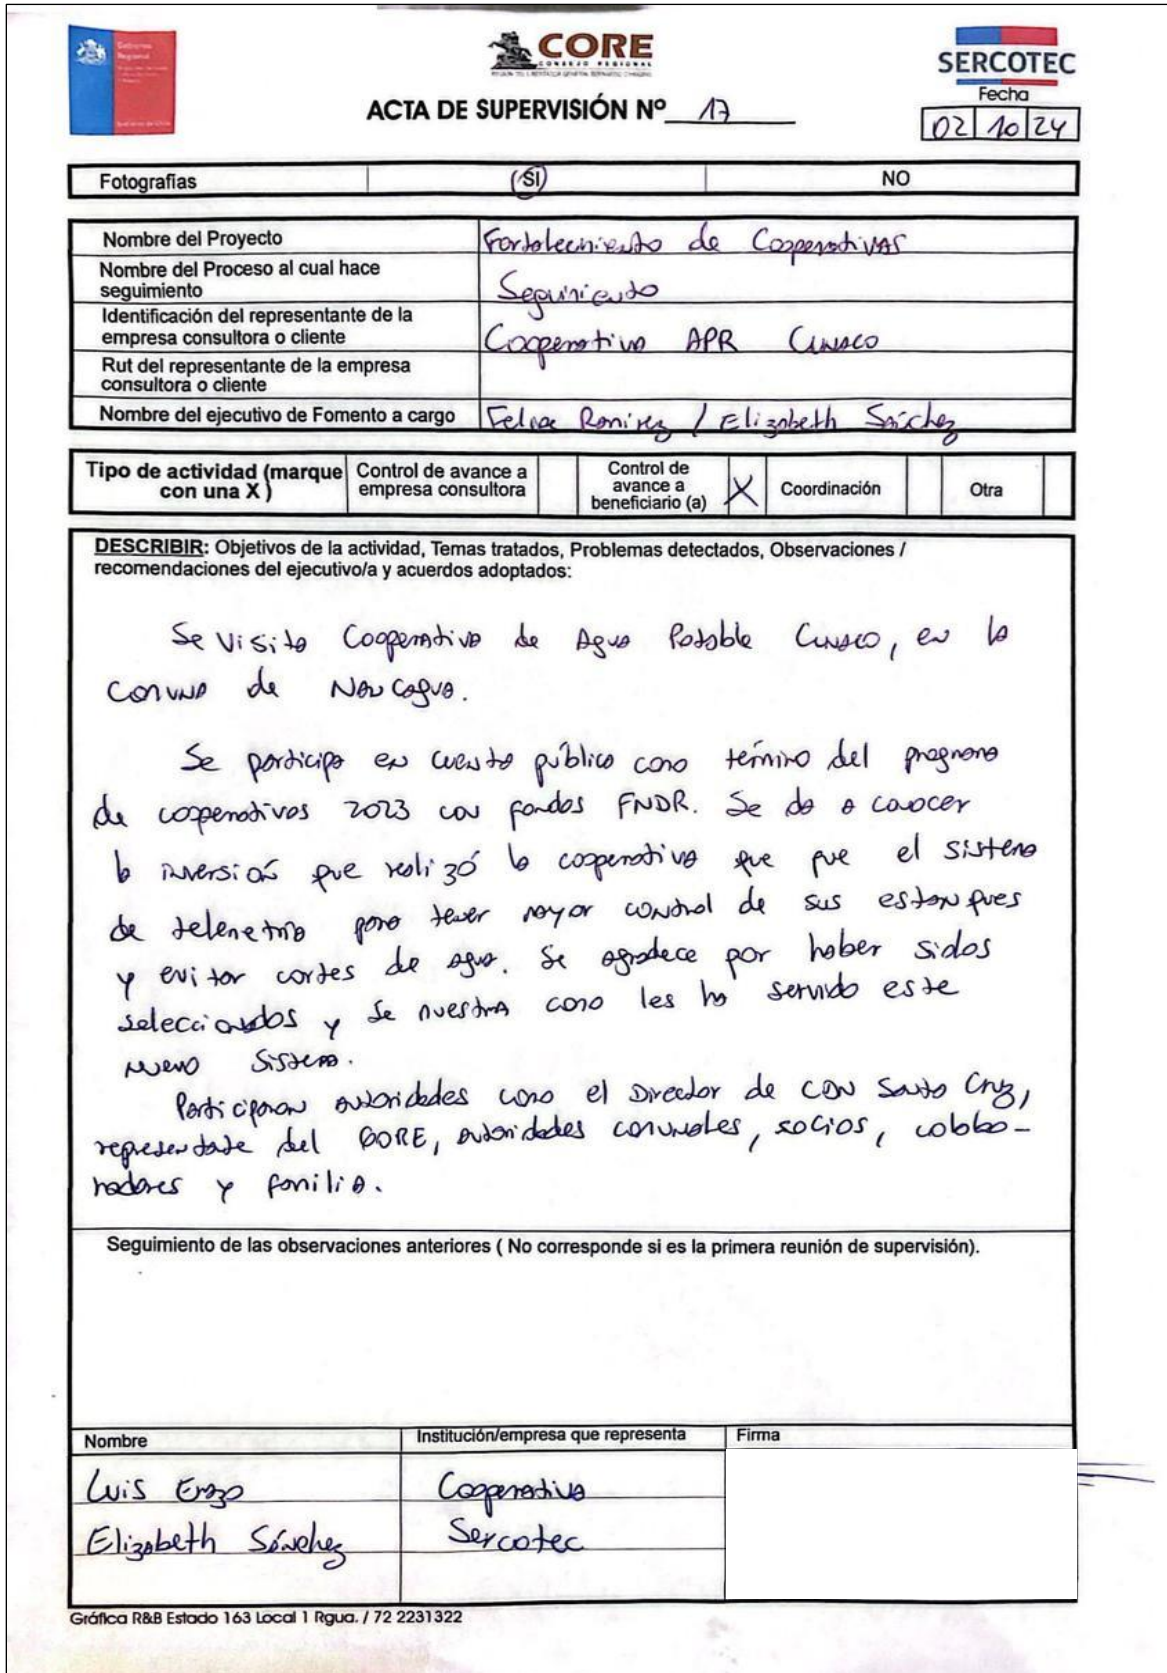 Gobierno
Regional
CORE
CONSEJO REGIONAL
SERCOTEC
Fecha
ACTA DE SUPERVISIÓN Nº 17
02 10 24
Fotografías SI NO
Nombre del Proyecto Fortalecimiento de Cooperativas
Nombre del Proceso al cual hace
seguimiento Seguimiento
Identificación del representante de la
empresa consultora o cliente Cooperativa APR Cunaco
Rut del representante de la empresa
consultora o cliente
Nombre del ejecutivo de Fomento a cargo Felipe Ramirez / Elizabeth Sánchez
Tipo de actividad (marque
con una X )
Control de avance a
empresa consultora
Control de
avance a
beneficiario (a) X
Coordinación
Otra
DESCRIBIR: Objetivos de la actividad, Temas tratados, Problemas detectados, Observaciones /
recomendaciones del ejecutivo/a y acuerdos adoptados:
Se visita Cooperativa de Agua Potable Cunaco, en la
comuna de Nancagua.
Se participa en cuenta pública como término del programa
de cooperativas 2023 con fondos FNDR. Se da a conocer
la inversión que realizó la cooperativa que fue el sistema
de telemetria para tener mayor control de sus estanques
y evitar cortes de agua. Se agradece por haber sidos
seleccionados y se muestra como les ha servido este
nuevo sistema.
Participaron autoridades como el Director de CDN Santa Cruz,
representate del GORE, autoridades comunales, socios, colabo-
radores y familia.
Seguimiento de las observaciones anteriores ( No corresponde si es la primera reunión de supervisión).
Nombre Institución/empresa que representa Firma
Luis Erazo Cooperativa
Elizabeth Sánchez Sercotec
Gráfica R&B Estado 163 Local 1 Rgua. / 72 2231322